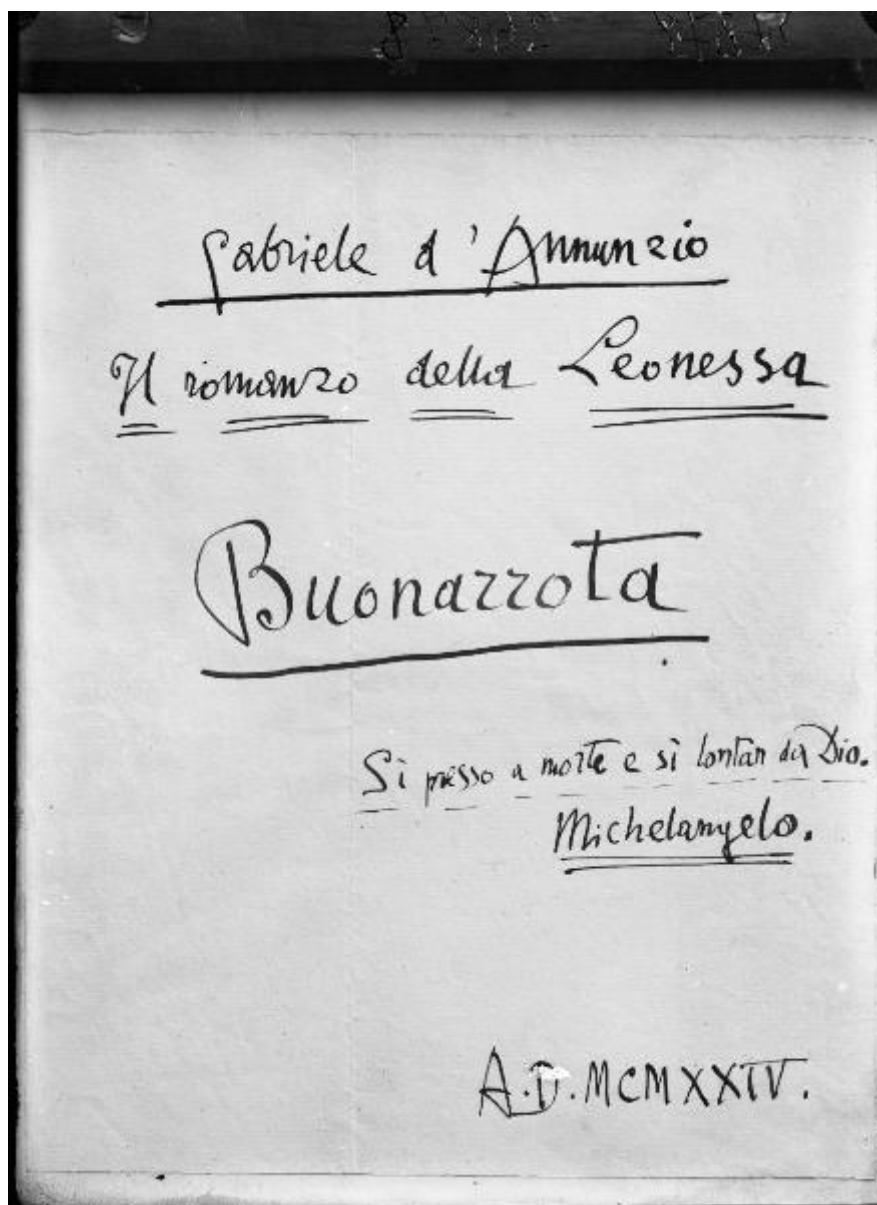 Gabriele d'Annunzio
Il romanzo della Leonessa
Buonarrota
Sì presso a morte e sì lontan da Dio.
Michelangelo.
A.D. MCMXXIV.